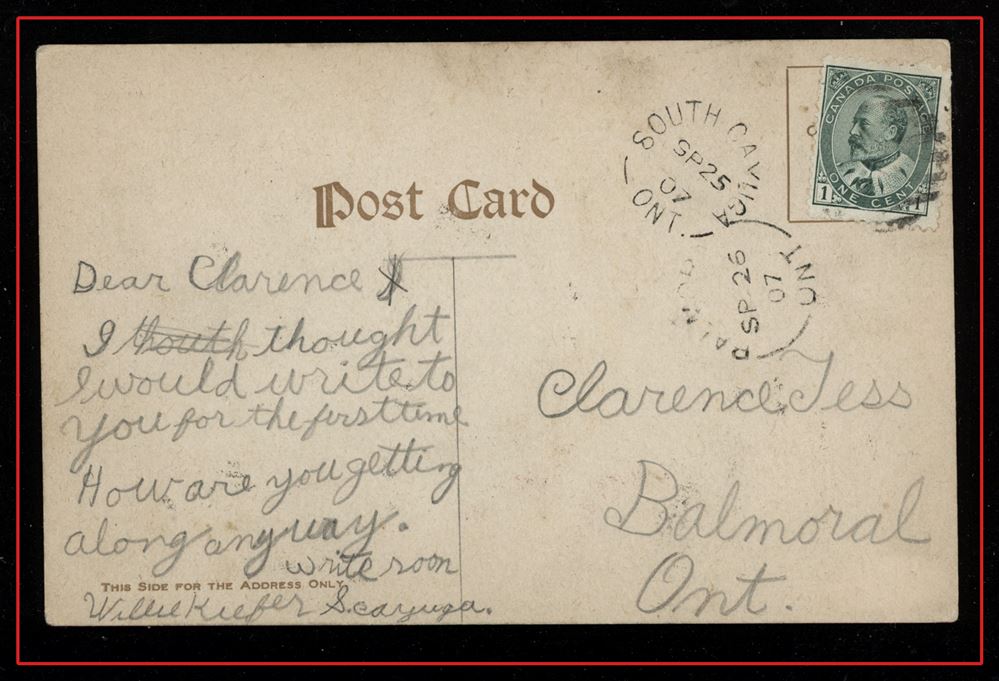 CANADA POSTAGE
1 ONE CENT 1
SOUTH CAYUGA
SP 25
07
ONT.
Post Card
SP 26
07
ONT
Dear Clarence
I thouth thought
I would write to
you for the first time
How are you getting
along anyway.
write soon
THIS SIDE FOR THE ADDRESS ONLY.
Willie Kiefer S cayuga.
Clarence Tess
Balmoral
Ont.